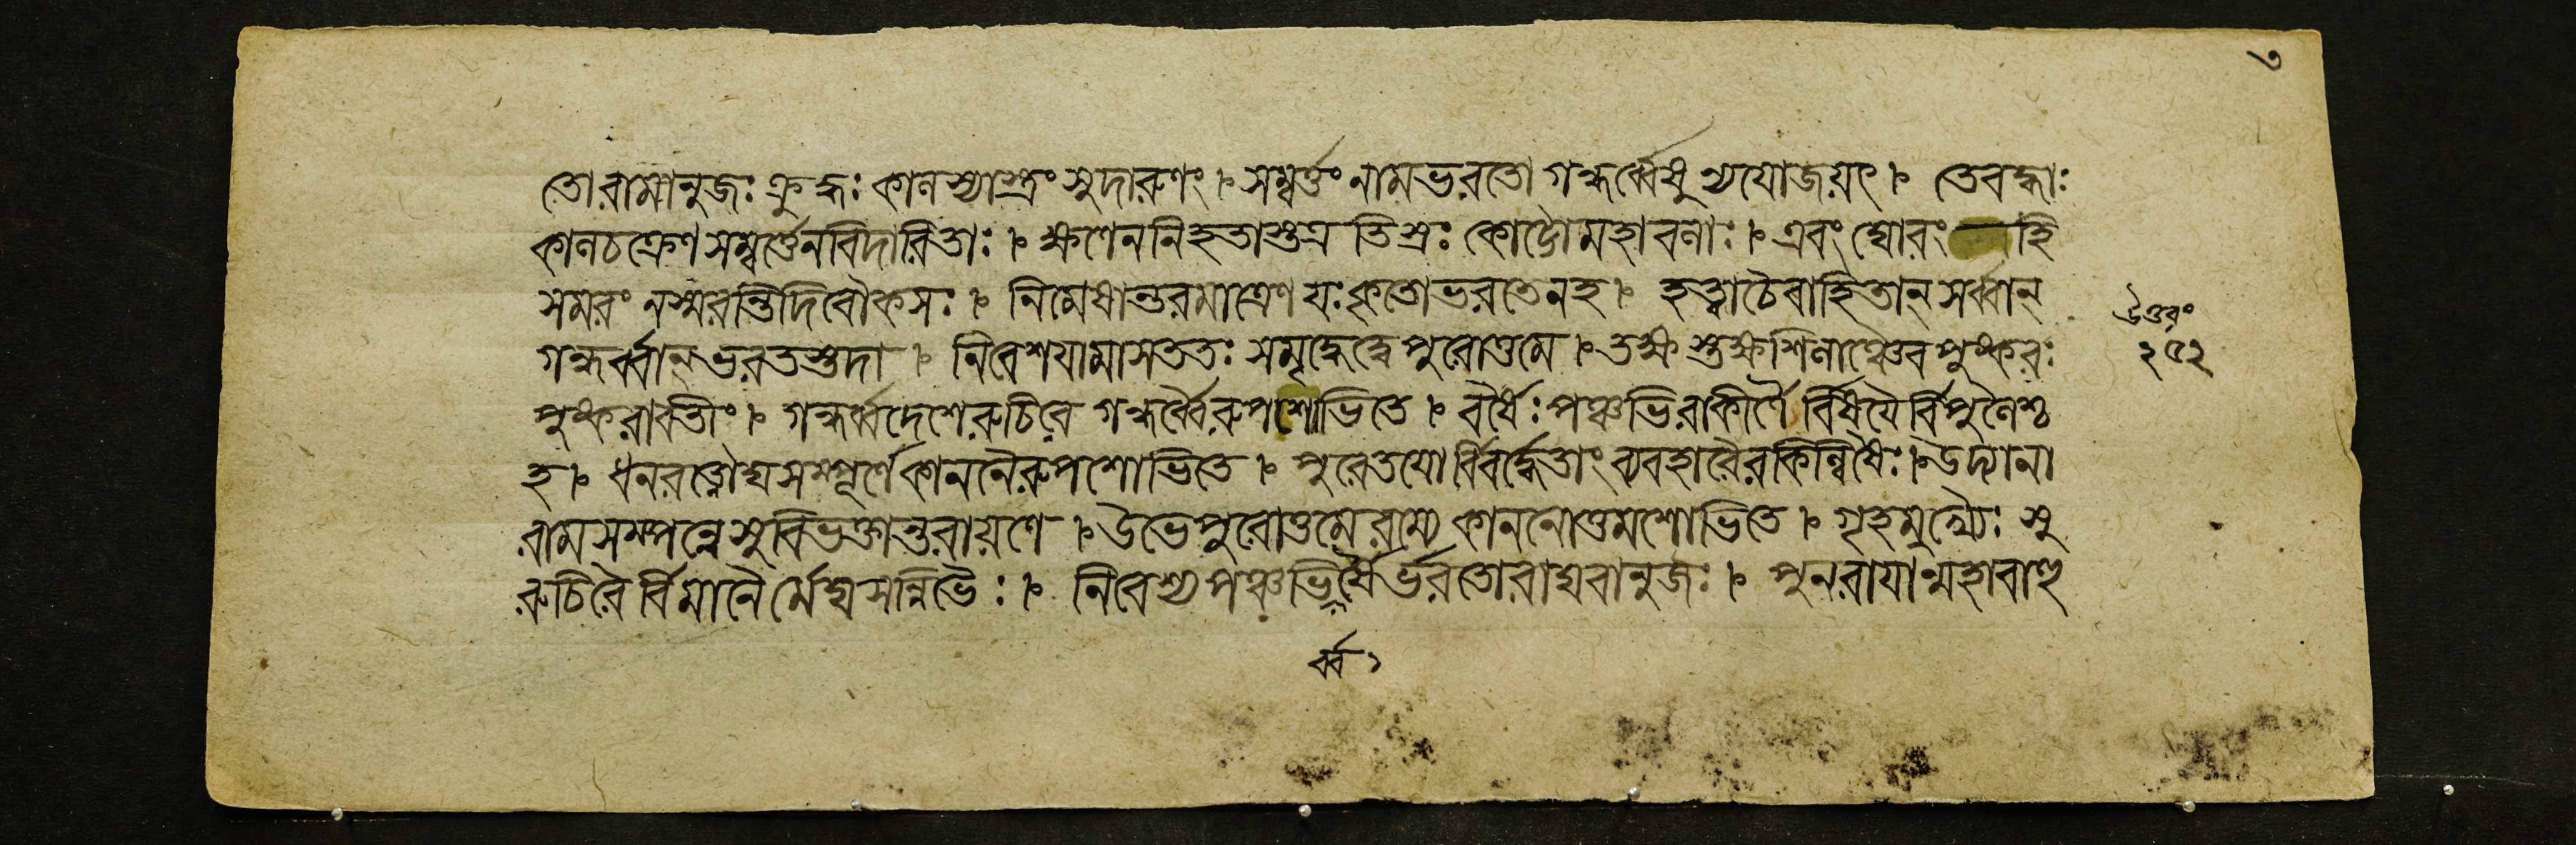 ৩
তোরামানুজঃ ক্রুদ্ধঃ কালস্যাস্ত্রং সুদারুণং ৷ সম্বর্ত্তং নামভরতো গন্ধর্ব্বেষুন্যযোজয়ৎ ৷ তেবদ্ধাঃ
কালচক্রেণ সম্বর্ত্তেনবিদারিতাঃ ৷ ক্ষণেননিহতাস্তত্র তিস্রঃ কোট্যোমহাবলাঃ ৷ এবং ঘোরং হি
সমরং নস্মরন্তিদিবৌকসঃ ৷ নিমেষান্তরমাত্রেণ যঃকৃতোভরতেনহ ৷ হত্বাচৈবাহিতান্ সর্ব্বান্
গন্ধর্ব্বান্ ভরতস্তদা ৷ নিবেশযামাসততঃ সমৃদ্ধেদ্বেপুরোত্তমে ৷ তক্ষ স্তক্ষশিলাঞ্চৈব পুষ্করঃ
পুষ্করাবতীং ৷ গন্ধর্ব্বদেশেরুচিরে গন্ধর্ব্বৈরুপশোভিতে ৷ বর্ষৈঃ পঞ্চভিরাকীর্ণৈ র্বিষয়ৈ র্বিপুলৈশ্চ
হ ৷ ধনরত্নৌঘসম্পূর্ণে কাননৈরুপশোভিতে ৷ পুরেতযো র্বিবর্দ্ধেতাং ব্যবহারৈরকিল্বিষৈঃ ৷ উদ্যানা
রামসম্পন্নে সুবিভক্তান্তরায়ণে ৷ উভেপুরোত্তমেরম্যে কাননোত্তমশোভিতে ৷ গৃহমুখ্যৈঃ সু
রুচিরৈ র্বিমানৈ র্মেঘসন্নিভৈঃ ৷ নিবেশ্য পঞ্চভির্বর্ষৈ র্ভরতোরাঘবানুজঃ ৷ পুনরাযান্মহাবাহু
উত্তরং
২৫২
র্ব্ব ১